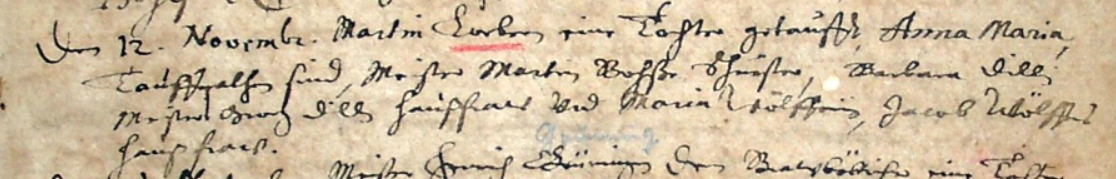 Den 12. Novembr. Martin Korben eine Tochter getaufft, Anna Maria,
Tauffpathen sind, Meister Martin Schuster, Barbara Dilli
Meister Georg Dilli haußfraw vnd Maria Wölffin, Jacob Wölffes
haußfraw.
Meister Henrich dem eine Tochter